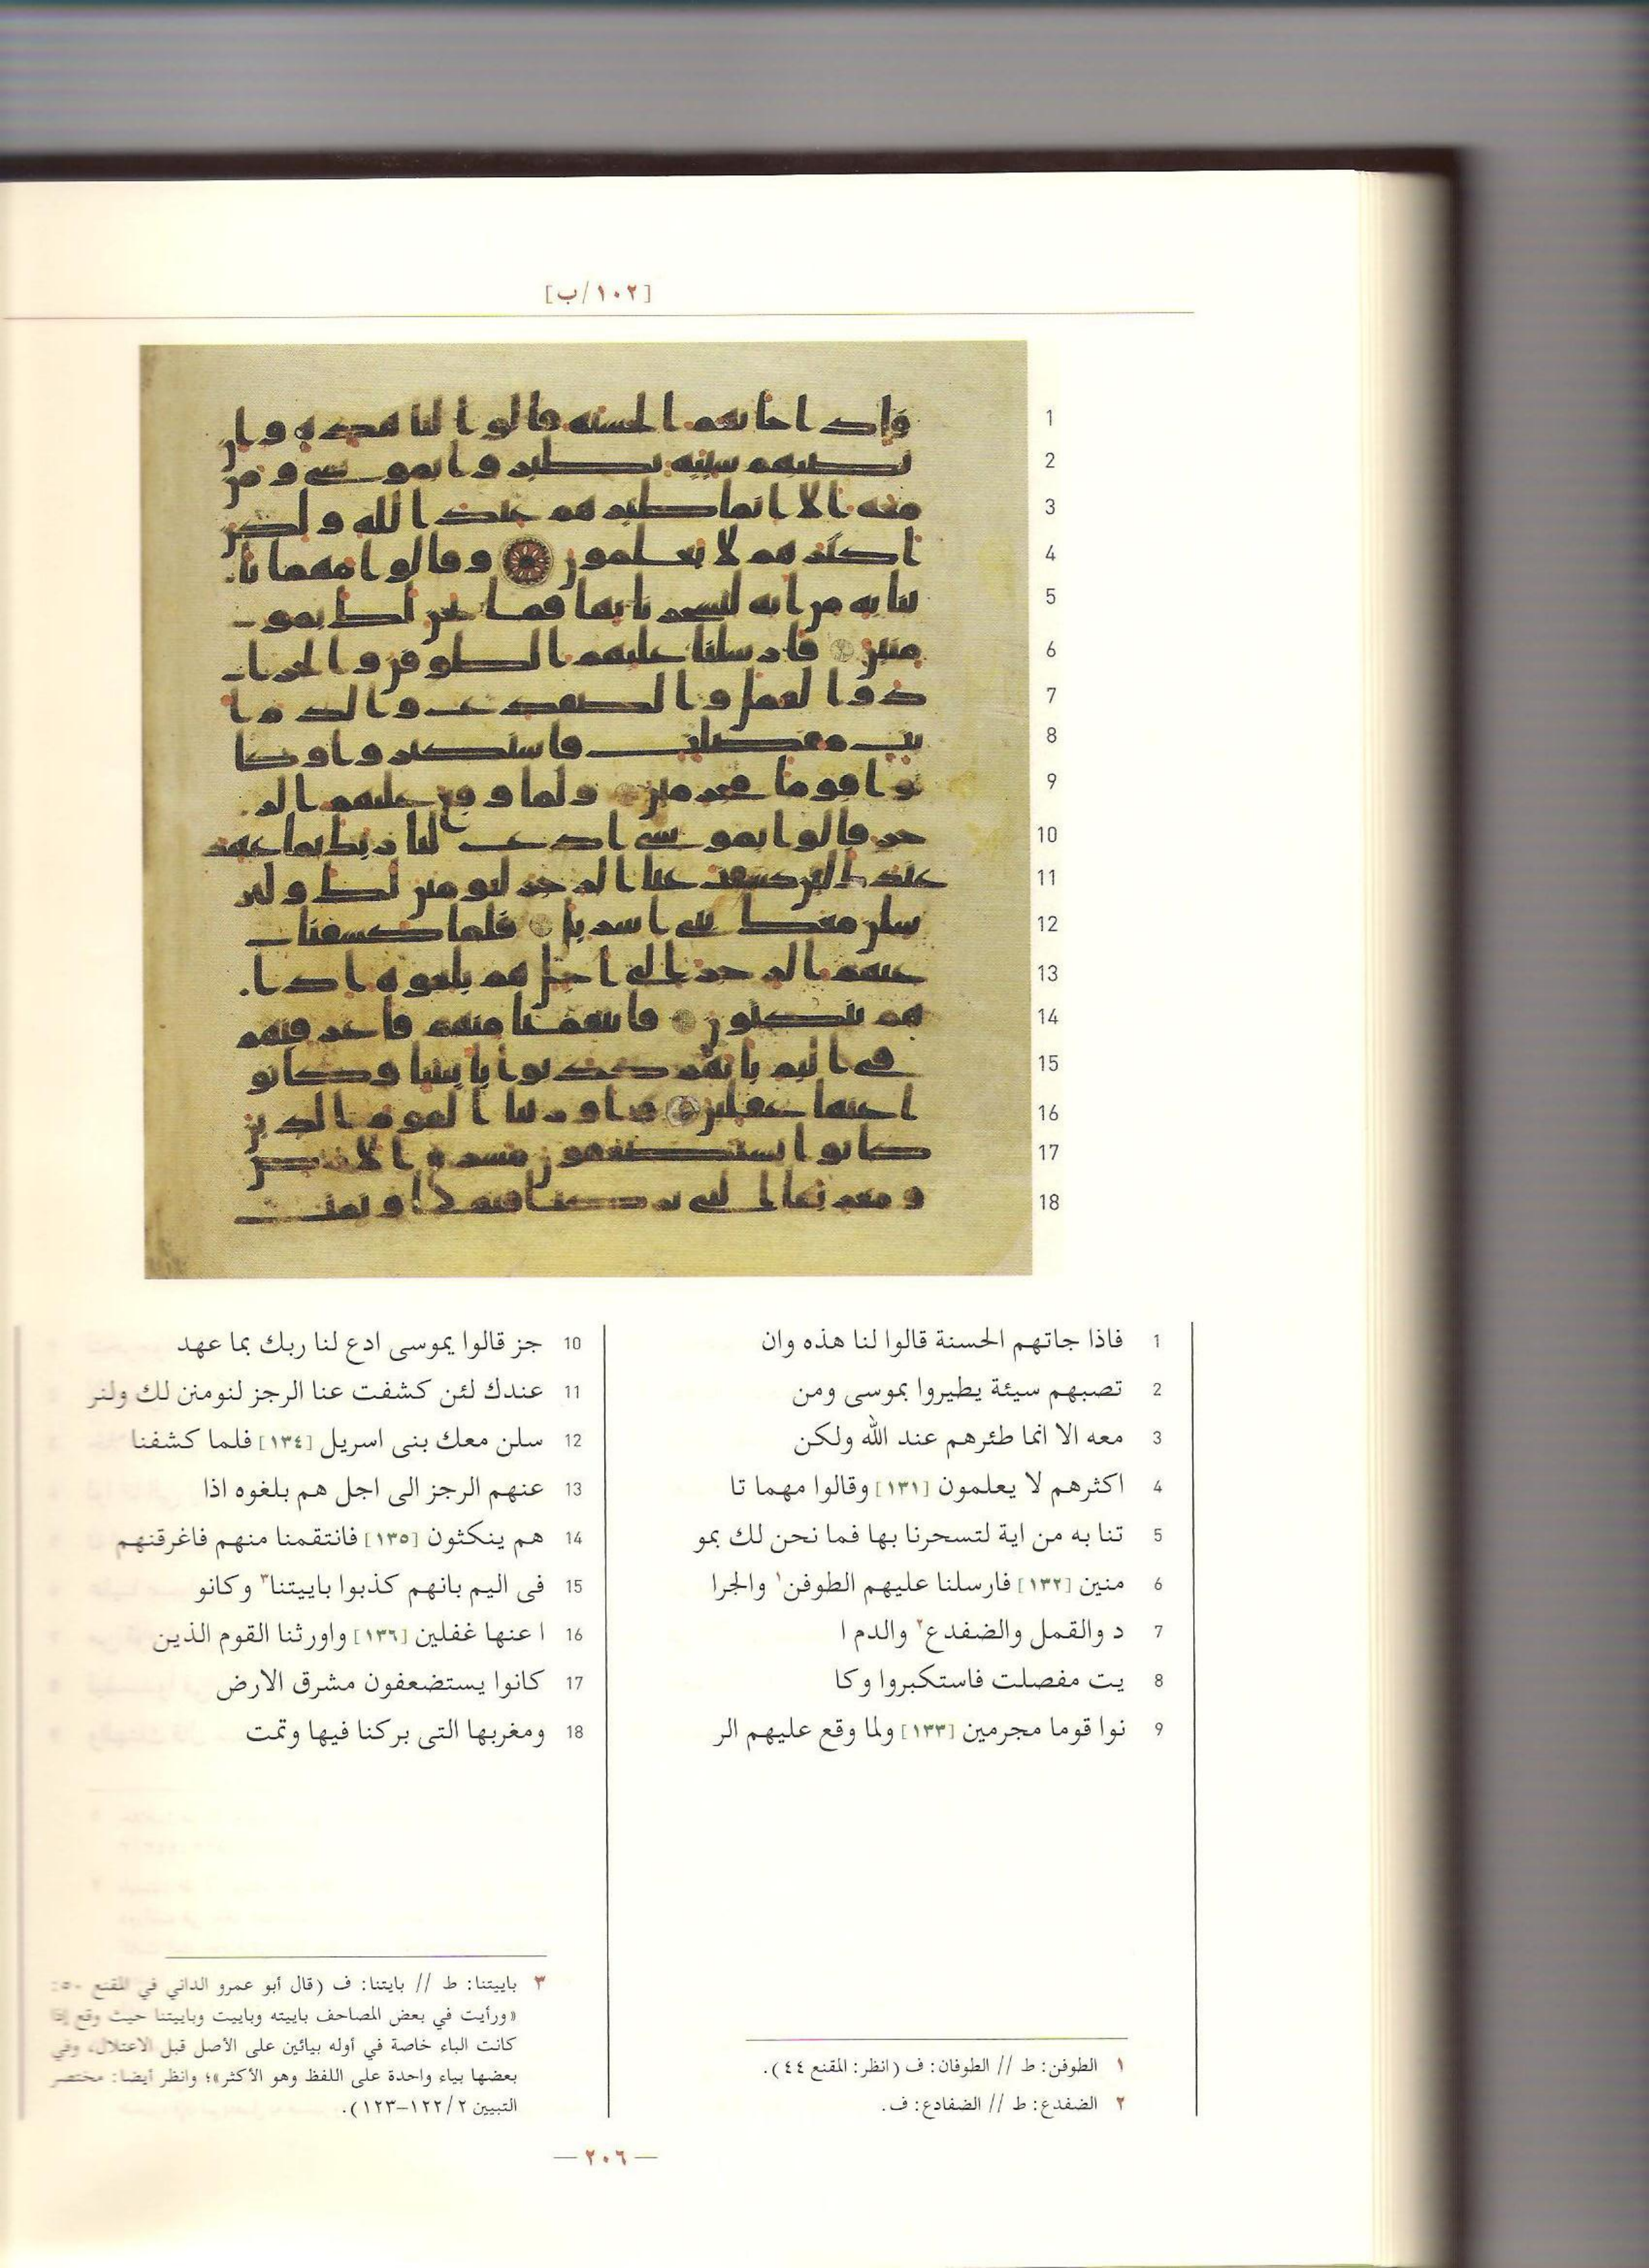 [١٠٢/ب]
1 فاذا جاتهم الحسنة قالوا لنا هذه وان
2 تصبهم سيئة يطيروا بموسى ومن
3 معه الا انما طئرهم عند الله ولكن
4 اكثرهم لا يعلمون [١٣١] وقالوا مهما تا
5 تنا به من اية لتسحرنا بها فما نحن لك بمو
6 منين [١٣٢] فارسلنا عليهم الطوفن١ والجرا
7 د والقمل والضفدع٢ والدم ا
8 يت مفصلت فاستكبروا وكا
9 نوا قوما مجرمين [١٣٣] ولما وقع عليهم الر
10 جز قالوا يموسى ادع لنا ربك بما عهد
11 عندك لئن كشفت عنا الرجز لنومنن لك ولنر
12 سلن معك بنى اسريل [١٣٤] فلما كشفنا
13 عنهم الرجز الى اجل هم بلغوه اذا
14 هم ينكثون [١٣٥] فانتقمنا منهم فاغرقنهم
15 فى اليم بانهم كذبوا باييتنا٣ وكانو
16 ا عنها غفلين [١٣٦] واورثنا القوم الذين
17 كانوا يستضعفون مشرق الارض
18 ومغربها التى بركنا فيها وتمت
١ الطوفن: ط // الطوفان: ف (انظر: المقنع ٤٤).
٢ الضفدع: ط // الضفادع: ف.
٣ باييتنا: ط // بايتنا: ف (قال أبو عمرو الداني في المقنع ٥٠:
«ورأيت في بعض المصاحف باييته وباييت وباييتنا حيث وقع إذا
كانت الباء خاصة في أوله بيائين على الأصل قبل الاعتلال، وفي
بعضها بياء واحدة على اللفظ وهو الأكثر»؛ وانظر أيضا: مختصر
التبيين ١٢٢/٢-١٢٣).
— ٢٠٦ —